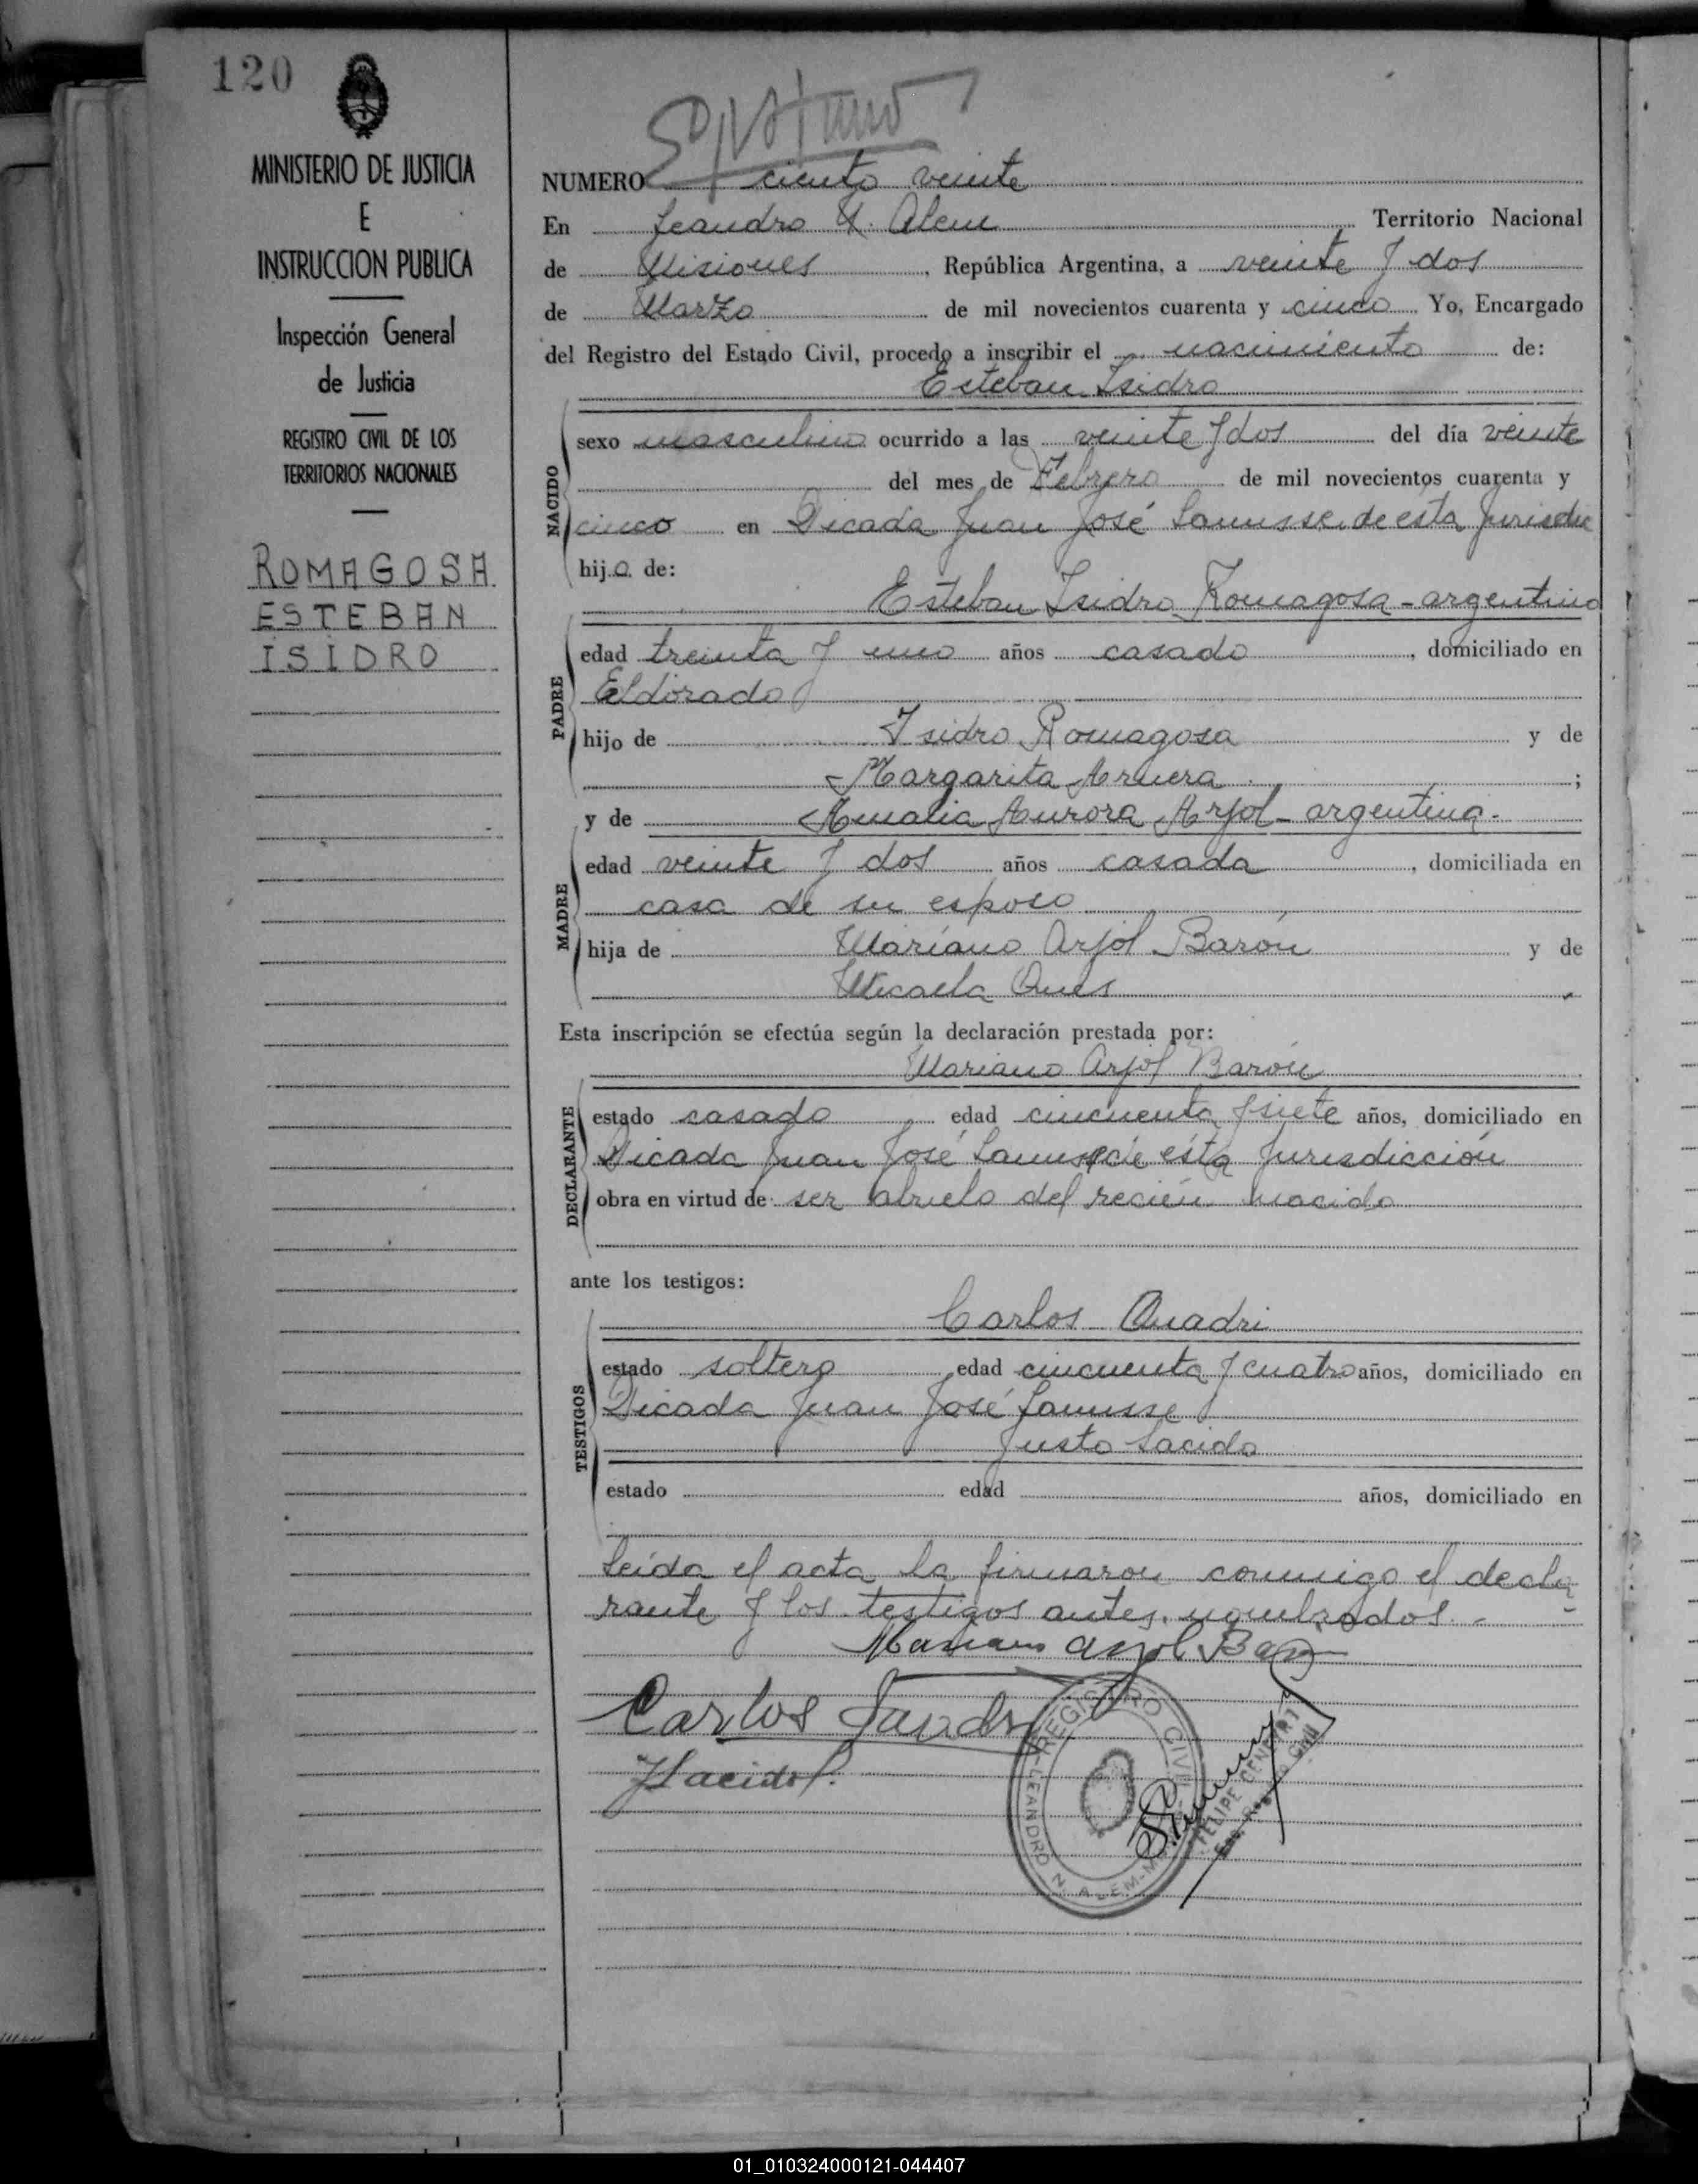 120
MINISTERIO DE JUSTICIA
E
INSTRUCCION PUBLICA
Inspección General
de Justicia
REGISTRO CIVIL DE LOS
TERRITORIOS NACIONALES
ROMAGOSA
ESTEBAN
ISIDRO
NUMERO ciento veinte
En Leandro N. Alem Territorio Nacional
de Misiones, República Argentina, a veinte y dos
de Marzo de mil novecientos cuarenta y cinco Yo, Encargado
del Registro del Estado Civil, procedo a inscribir el nacimiento de:
Esteban Isidro
NACIDO
sexo masculino ocurrido a las veinte y dos del día veinte
del mes de Febrero de mil novecientos cuarenta y
cinco en Picada Juan José Lanusse de esta Jurisdic
hijo de:
Esteban Isidro Romagosa - argentino
PADRE
edad treinta y uno años casado, domiciliado en
Eldorado
hijo de Isidro Romagosa y de
Margarita Arnera;
y de Amalia Aurora Arjol - argentina.
MADRE
edad veinte y dos años casada, domiciliada en
casa de su esposo
hija de Mariano Arjol Barón y de
Micaela
Esta inscripción se efectúa según la declaración prestada por:
Mariano Arjol Barón
DECLARANTE
estado casado edad cincuenta y siete años, domiciliado en
Picada Juan José Lanusse de ésta Jurisdicción
obra en virtud de ser abuelo del recién nacido
ante los testigos:
Carlos Quadri
TESTIGOS
estado soltero edad cincuenta y cuatro años, domiciliado en
Picada Juan José Lanusse
Justo Lacido
estado edad años, domiciliado en
Leida el acta la firmaron conmigo el decla
rante y los testigos antes nombrados. -
Mariano Arjol Barón
Carlos
JLacido
REGISTRO CIVIL
LEANDRO N. ALEM-
FELIPE
Enc. Registro Civil
01_010324000121-044407